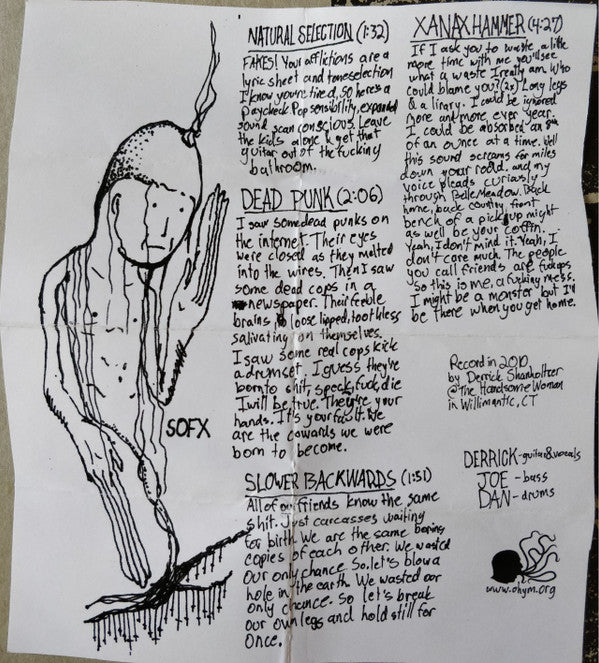 NATURAL SELECTION (1:32)
FAKES! Your afflictions are a
lyric sheet and tone selection
I know you're tired, so here's a
paycheck. Pop sensibility, expanded
sound scan conscious. Leave
the kids alone & get that
guitar out of the fucking
bathroom.
DEAD PUNK (2:06)
I saw some dead punks on
the internet. Their eyes
were closed as they melted
into the wires. Then I saw
some dead cops in a
newspaper. Their feeble
brains loose lipped, toothless
salivating on themselves.
I saw some real cops kick
a drumset. I guess they're
born to shit, speck, fuck, die
I will be true. They're your
hands. It's your fault. We
are the cowards we were
born to become.
SLOWER BACKWARDS (1:51)
All of our friends know the same
shit. Just carcasses waiting
for birth. We are the same boring
copies of each other. We wasted
our only chance. So let's blow a
hole in the earth. We wasted our
only chance. So let's break
our own legs and hold still for
once.
XANAX HAMMER (4:27)
If I ask you to waste a little
more time with me you'll see
what a waste I really am. Who
could blame you? (2x) Long legs
& a library. I could be ignored
more and more ever year.
I could be absorbed an
of an ounce at a time. Well
this sound screams for miles
down your road. and my
voice pleads curiously
through Belle Meadow. Back
home, back country, front
bench of a pickup might
as well be your coffin.
Yeah, I don't mind it. Yeah, I
don't care much. The people
you call friends are fuckups
so this is me, a fucking mess.
I might be a monster but I'll
be there when you get home.
Record in 2010
by Derrick Shanholtzer
@ The Handsome Woman
in Willimantic, CT
DERRICK - guitar & vocals
JOE - bass
DAN - drums
www.ohym.org
SOFX